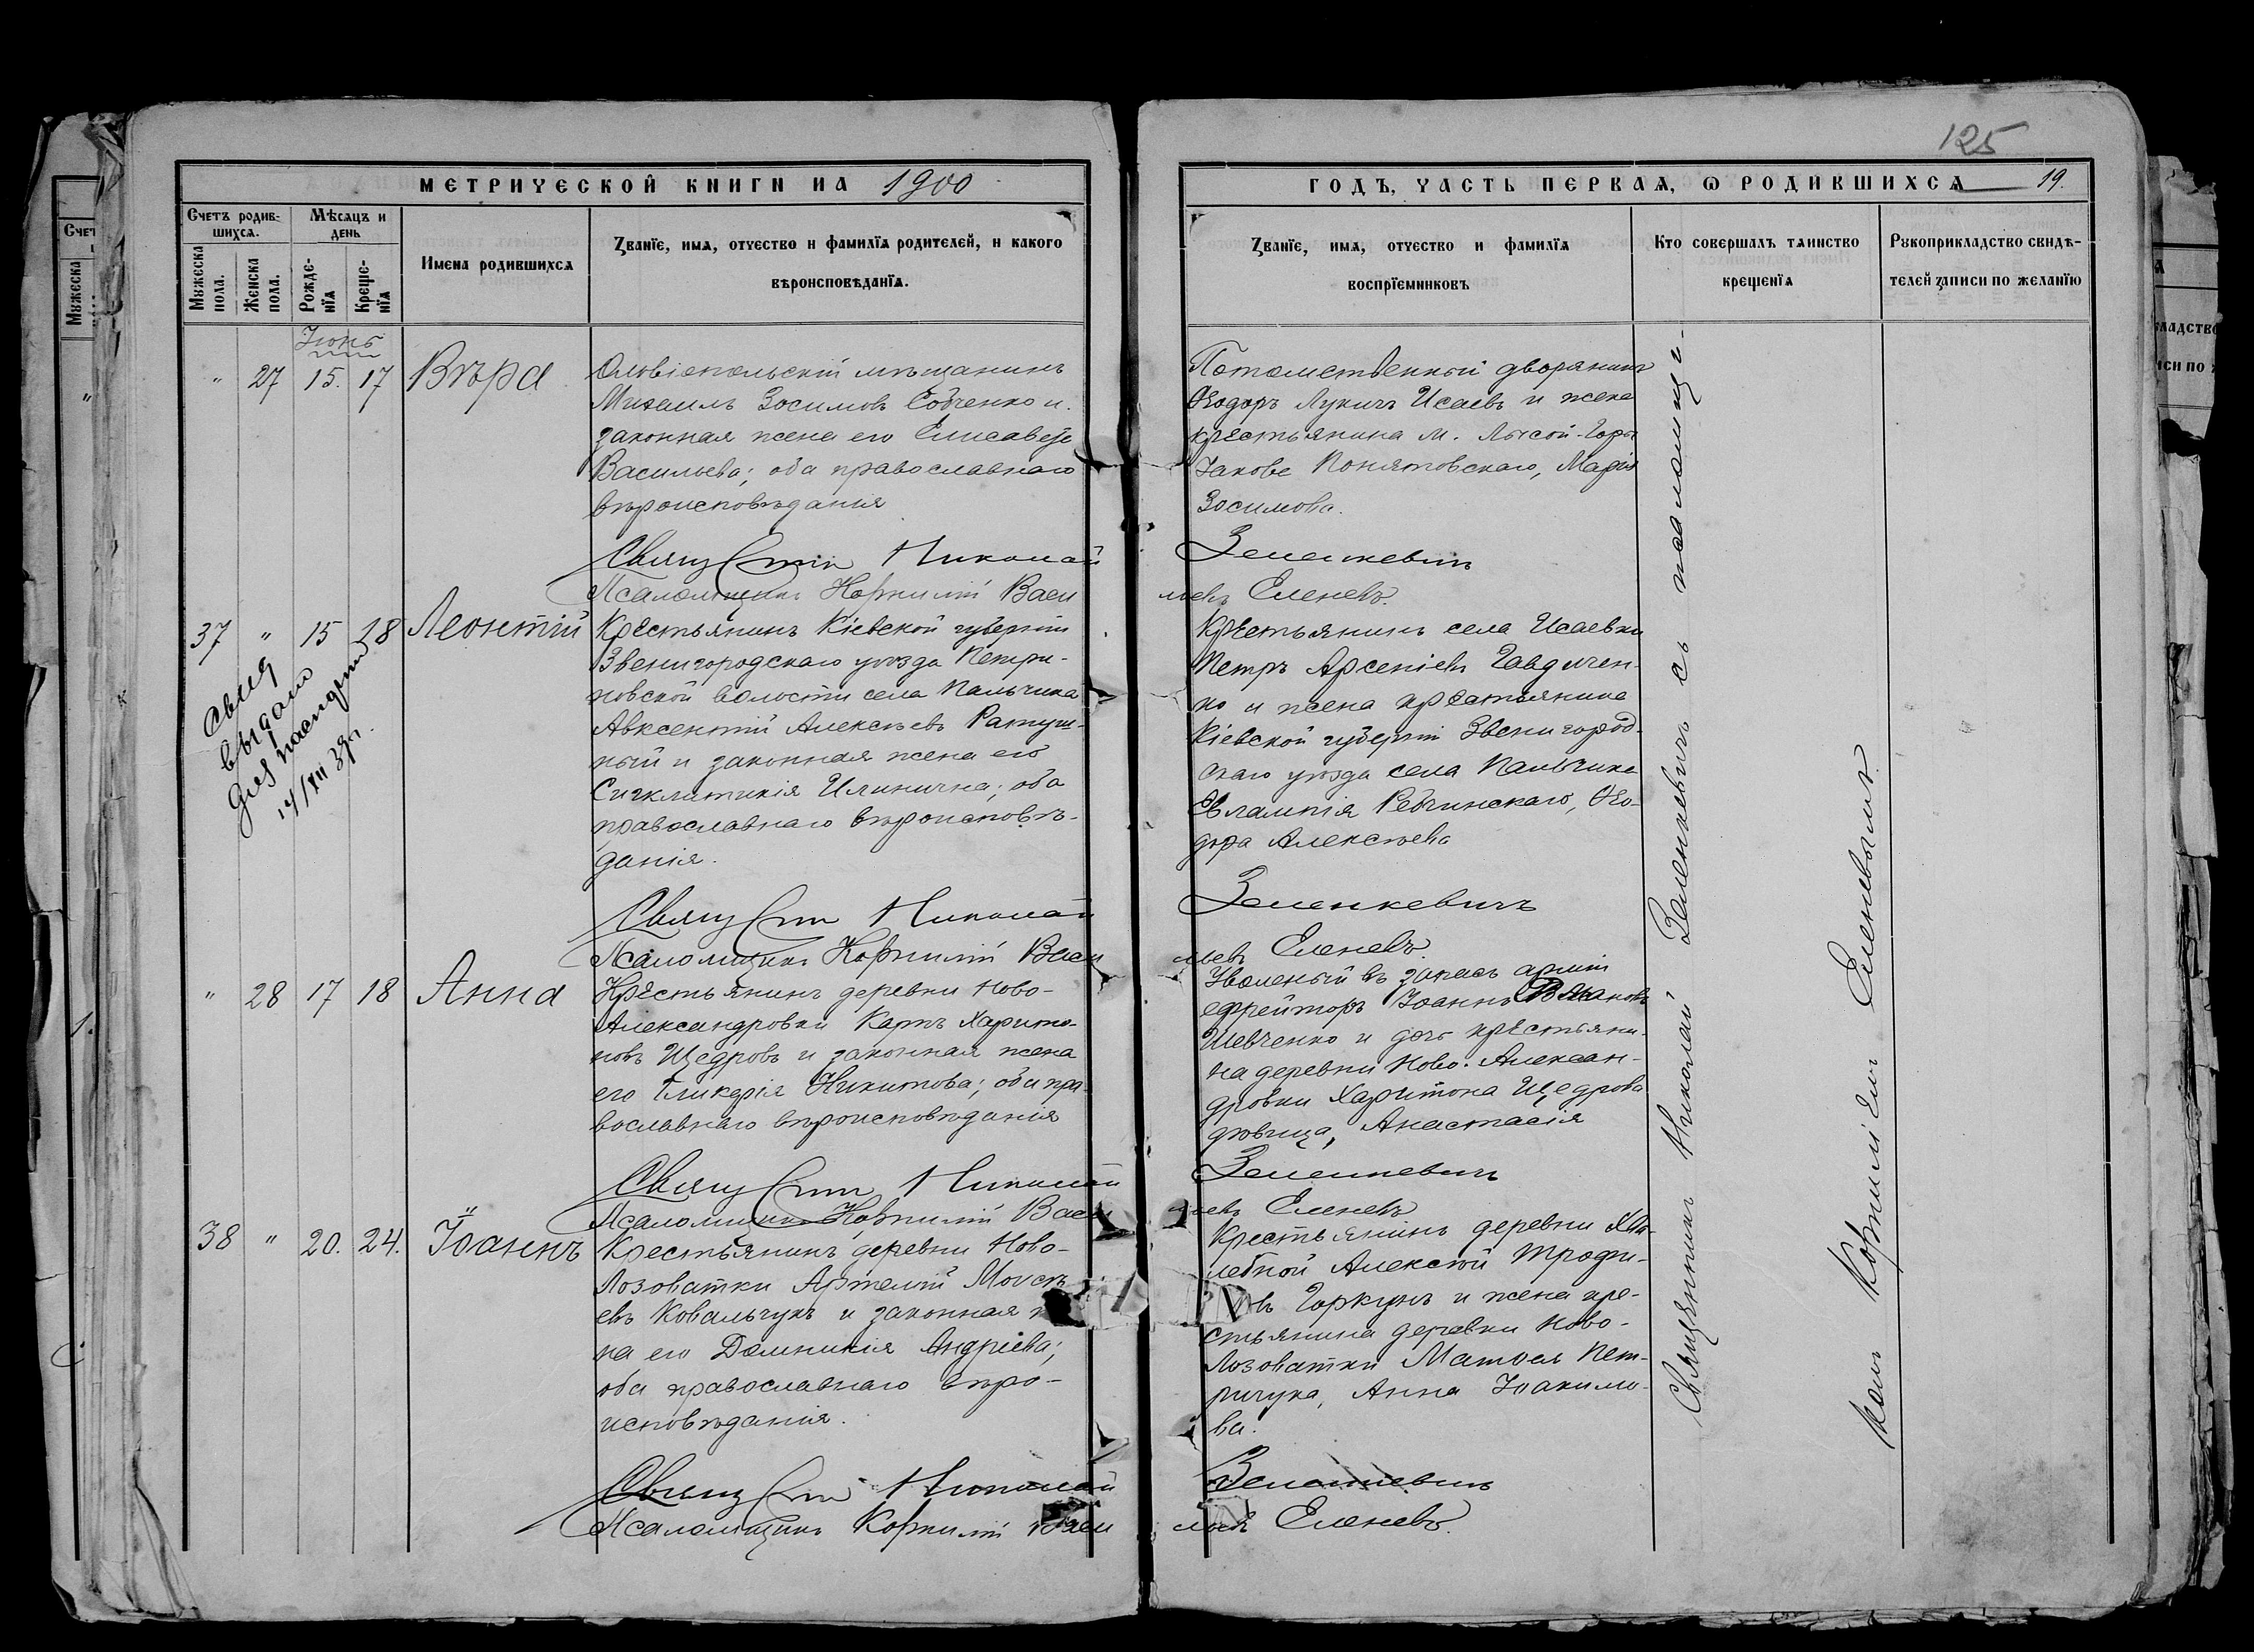 125
МЕТРИЧЕСКОЙ КНИГИ НА 1900
ГОДЪ, ЧАСТЬ ПЕРВАЯ, Ѡ РОДИВШИХСЯ 19.
Счетъ родив-
шихся.
Мѣсяцъ и
день
Мужеска
пола.
Женска
пола.
Рожде-
нїя
Креще-
нїя
Имена родившихся
Званїе, имя, отчество и фамилїя родителей, и какого
вѣроисповѣданїя.
Званїе, имя, отчество и фамилїя
воспрїемниковъ
Кто совершалъ таинство
крещенїя
Рукоприкладство свидѣ-
телей записи по желанїю
Іюнь
" 27 15. 17 Вѣра
Ольвіопольскій мѣщанинъ
Михаилъ Зосимовъ Собченко и
законная жена его Елисавета
Васильева; оба православнаго
вѣроисповѣданія
Потомственный дворянинъ
Ѳеодоръ Лукичъ Исаевъ и жена
крестьянина м. Лысой-Горы
Іакова Понятовскаго, Марія
Зосимова.
Священникъ Николай Зеленкевичъ
Псаломщикъ Корнилій Васильевъ Еленевъ.
37 " 15 18 Леонтій
свид
выдано
для паспорта
14/XII 39 г.
Крестьянинъ Кіевской губерніи
Звенигородскаго уѣзда Петри-
ковской волости села Пальчика
Авксентій Алексѣевъ Ратуш-
ный и законная жена его
Сигклитикія Илинична; оба
православнаго вѣроисповѣ-
данія.
Крестьянинъ села Исаевки
Петръ Арсеніевъ Гавдичен-
ко и жена крестьянина
Кіевской губерніи Звенигород-
скаго уѣзда села Пальчика
Евлампія Ребчинскаго, Ѳео-
дора Алексѣева
Священникъ Николай Зеленкевичъ
Псаломщикъ Корнилій Васильевъ Еленевъ.
" 28 17 18 Анна
Крестьянинъ деревни Ново-
Александровки Карпъ Харито-
новъ Щедровъ и законная жена
его Гликерія Никитова; оба пра-
вославнаго вѣроисповѣданія
Уволеный въ запасъ арміи
ефрейторъ Іоаннъ
Шевченко и дочь крестьяни-
на деревни Ново-Алексан-
дровки Харитона Щедрова
дѣвица, Анастасія
Священникъ Николай Зеленкевичъ
Псаломщикъ Корнилій Васильевъ Еленевъ
38 " 20. 24. Іоаннъ
Крестьянинъ деревни Ново-
Лозоватки Артемій Моисѣ-
евъ Ковальчукъ и законная
на его Домникія Андріева;
оба православнаго вѣро-
исповѣданія.
Крестьянинъ деревни
лебной Алексѣй Трофи-
въ Горкунъ и жена кре-
стьянина деревни Ново-
Лозоватки Матвея Пет-
ричука, Анна Іоакимо-
ва.
Священникъ Николай Зеленкевичъ
Псаломщикъ Корнилій Васильевъ Еленевъ.
Священникъ Николай Зеленкевичъ съ псаломщи-
комъ Корниліемъ Еленевымъ.